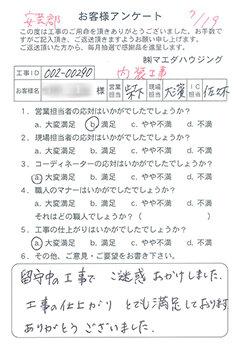 安芸郡
お客様アンケート
7/19
この度は工事のご用命を頂きありがとうございました。お手数で
すがご記入頂き、ご返送頂きますようお願い申し上げます。
ご返送頂いた方から、毎月抽選で感謝品を進呈します。
㈱マエダハウジング
工事ID 002-00290 内装工事
お客様名 様 営業担当 現場担当 IC担当
1. 営業担当者の応対はいかがでしたでしょうか?
a.大変満足 b.満足 c.やや不満 d.不満
2. 現場担当者の応対はいかがでしたでしょうか?
a.大変満足 b.満足 c.やや不満 d.不満
3. コーディネーターの応対はいかがでしたでしょうか?
a.大変満足 b.満足 c.やや不満 d.不満
4. 職人のマナーはいかがでしたでしょうか?
a.大変満足 b.満足 c.やや不満 d.不満
それはどの職人でしょうか?( )
5. 工事の仕上がりはいかがでしたでしょうか?
a.大変満足 b.満足 c.やや不満 d.不満
6. その他、ご意見・ご要望をお書き下さい。
留守中の工事で ご迷惑おかけしました.
工事の仕上がり とても満足しております
ありがとうございました.